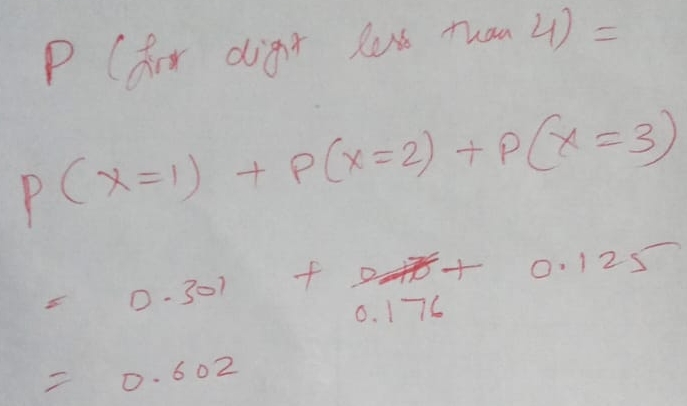 P (first digit less than 4) =
P(X=1) + P(X=2) + P(X=3)
= 0.301 + + 0.125
0.176
= 0.602